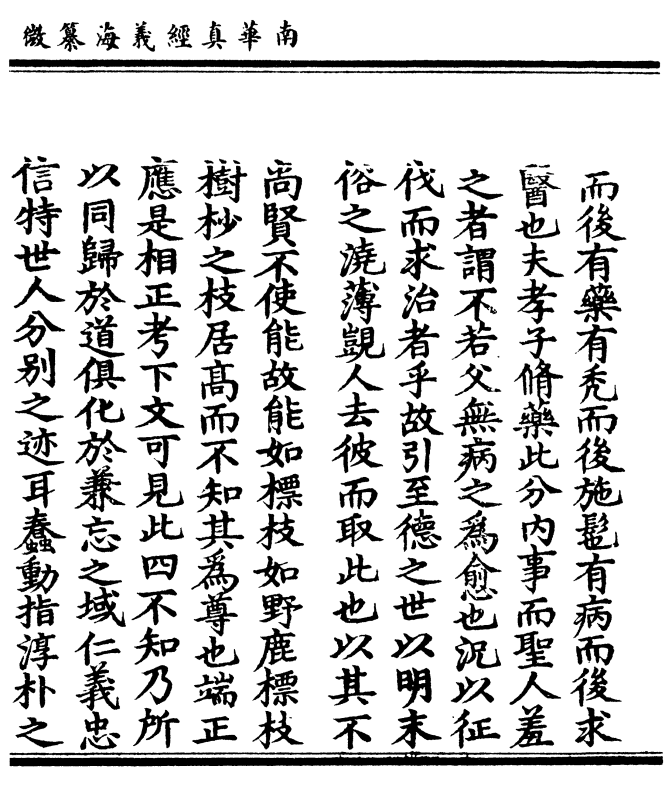 南華真經義海纂微
而後有藥有禿而後施髢有病而後求
醫也夫孝子脩藥此分內事而聖人羞
之者謂不若父無病之爲愈也況以征
伐而求治者乎故引至德之世以明末
俗之澆薄覬人去彼而取此也以其不
尚賢不使能故能如標枝如野鹿標枝
樹杪之枝居髙而不知其爲尊也端正
應是相正考下文可見此四不知乃所
以同歸於道俱化於兼忘之域仁義忠
信特世人分别之迹耳蠢動指淳朴之